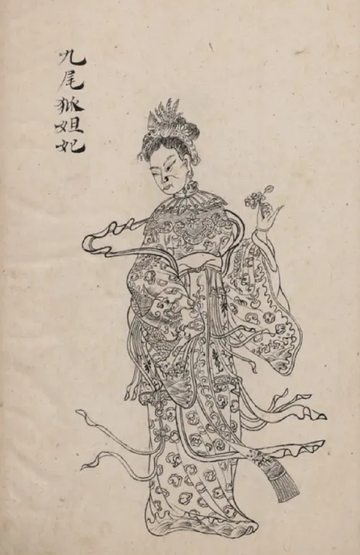 九尾狐妲妃